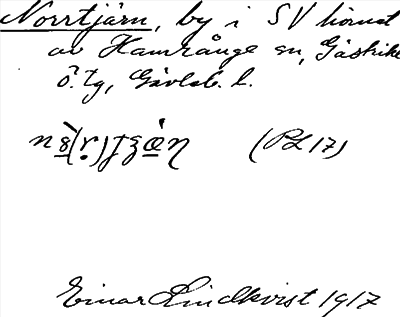 Norrtjärn, by i SV hörnet
av Hamrånge sn, Gästrikl.
ö. tg, Gävleb. l.
(PL 17)
Einar Lindkvist 1917